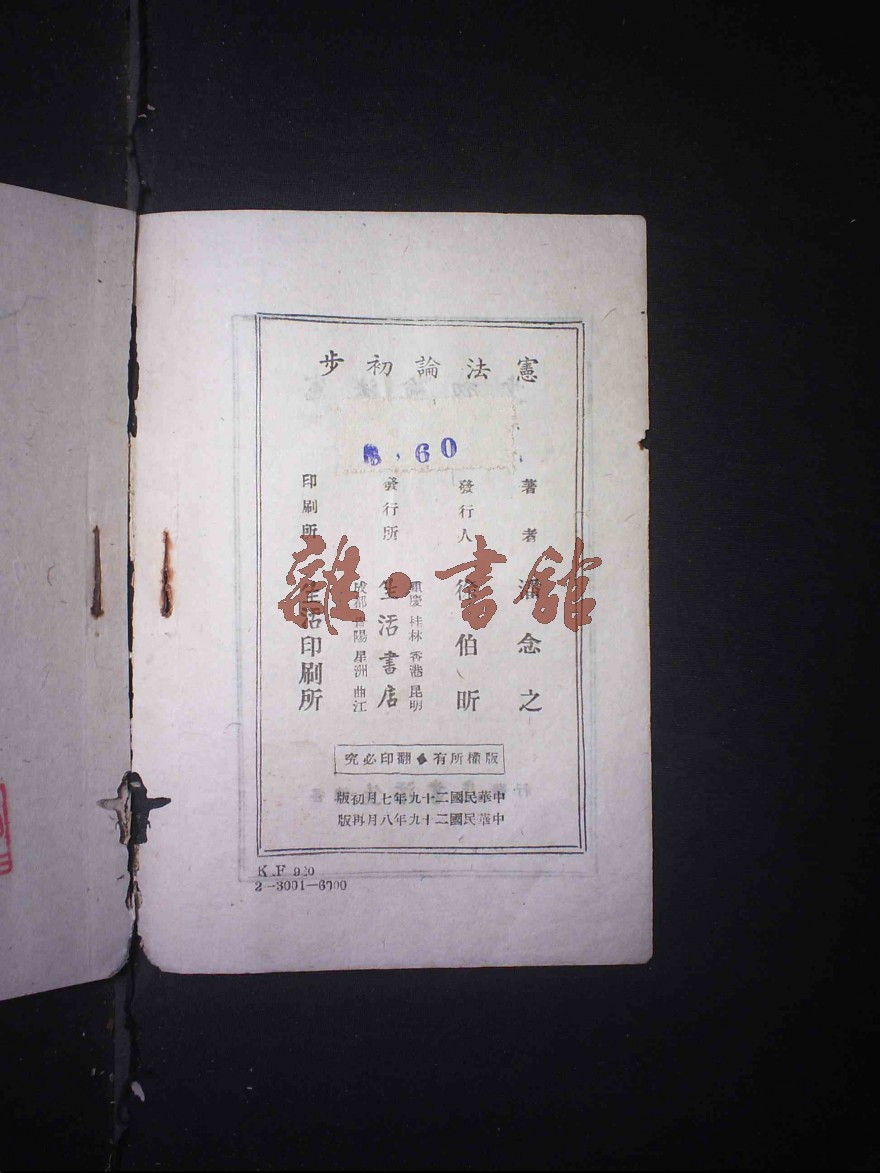 憲法論初步
.60
著者 潘念之
發行人 徐伯昕
發行所 生活書店
重慶 桂林 香港 昆明
成都 貴陽 星洲 曲江
印刷所 生活印刷所
版權所有◆翻印必究
中華民國二十九年七月初版
中華民國二十九年八月再版
K.F 920
2—3001—6700
雜·書館